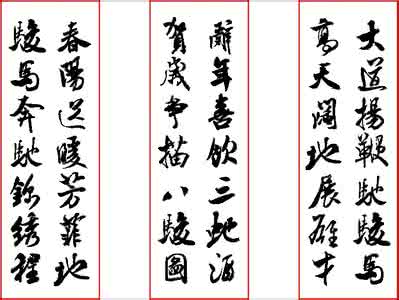 大道揚鞭馳駿馬
高天闊地展雄才
辭年喜飲三蛇酒
賀歲争描八駿圖
春陽送暖芳菲地
駿馬奔馳錦綉程